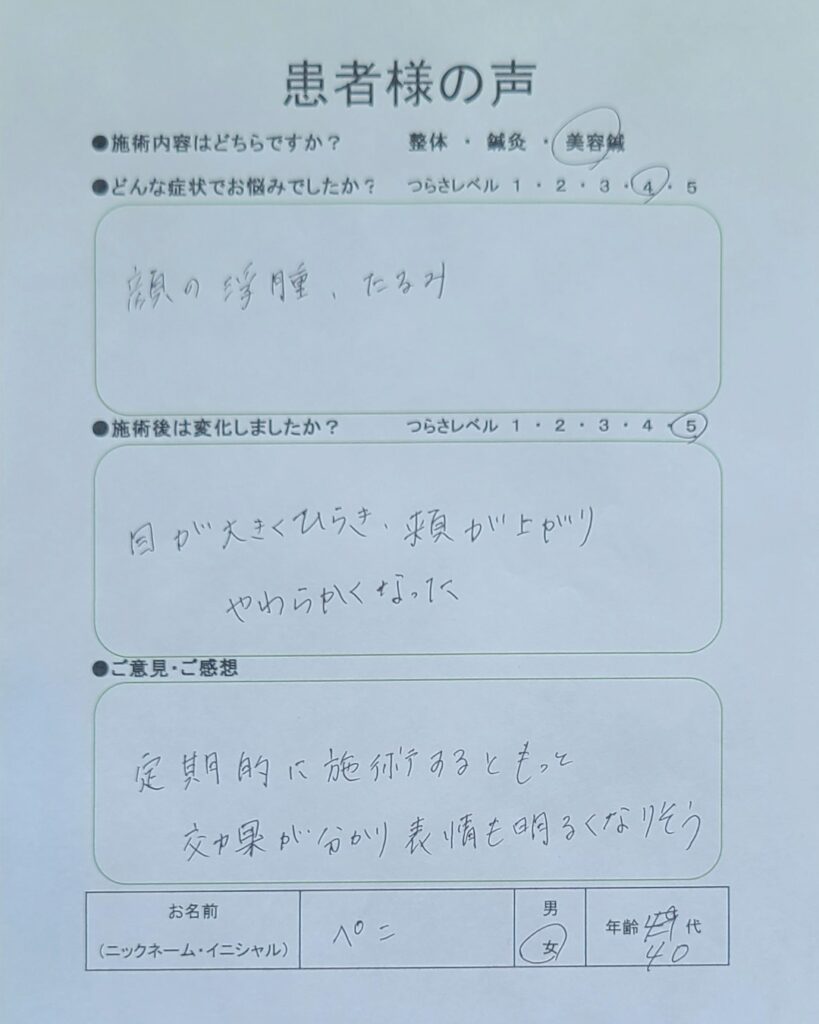 患者様の声
●施術内容はどちらですか？ 整体 ・ 鍼灸 ・ 美容鍼
●どんな症状でお悩みでしたか？ つらさレベル 1 ・ 2 ・ 3 ・ 4 ・ 5
顔の浮腫、たるみ
●施術後は変化しましたか？ つらさレベル 1 ・ 2 ・ 3 ・ 4 ・ 5
目が大きくひらき、頬が上がり
やわらかくなった
●ご意見・ご感想
定期的に施術するともっと
効果が分かり表情も明るくなりそう
お名前
(ニックネーム・イニシャル)
ペニ
男
女
年齢 代
40